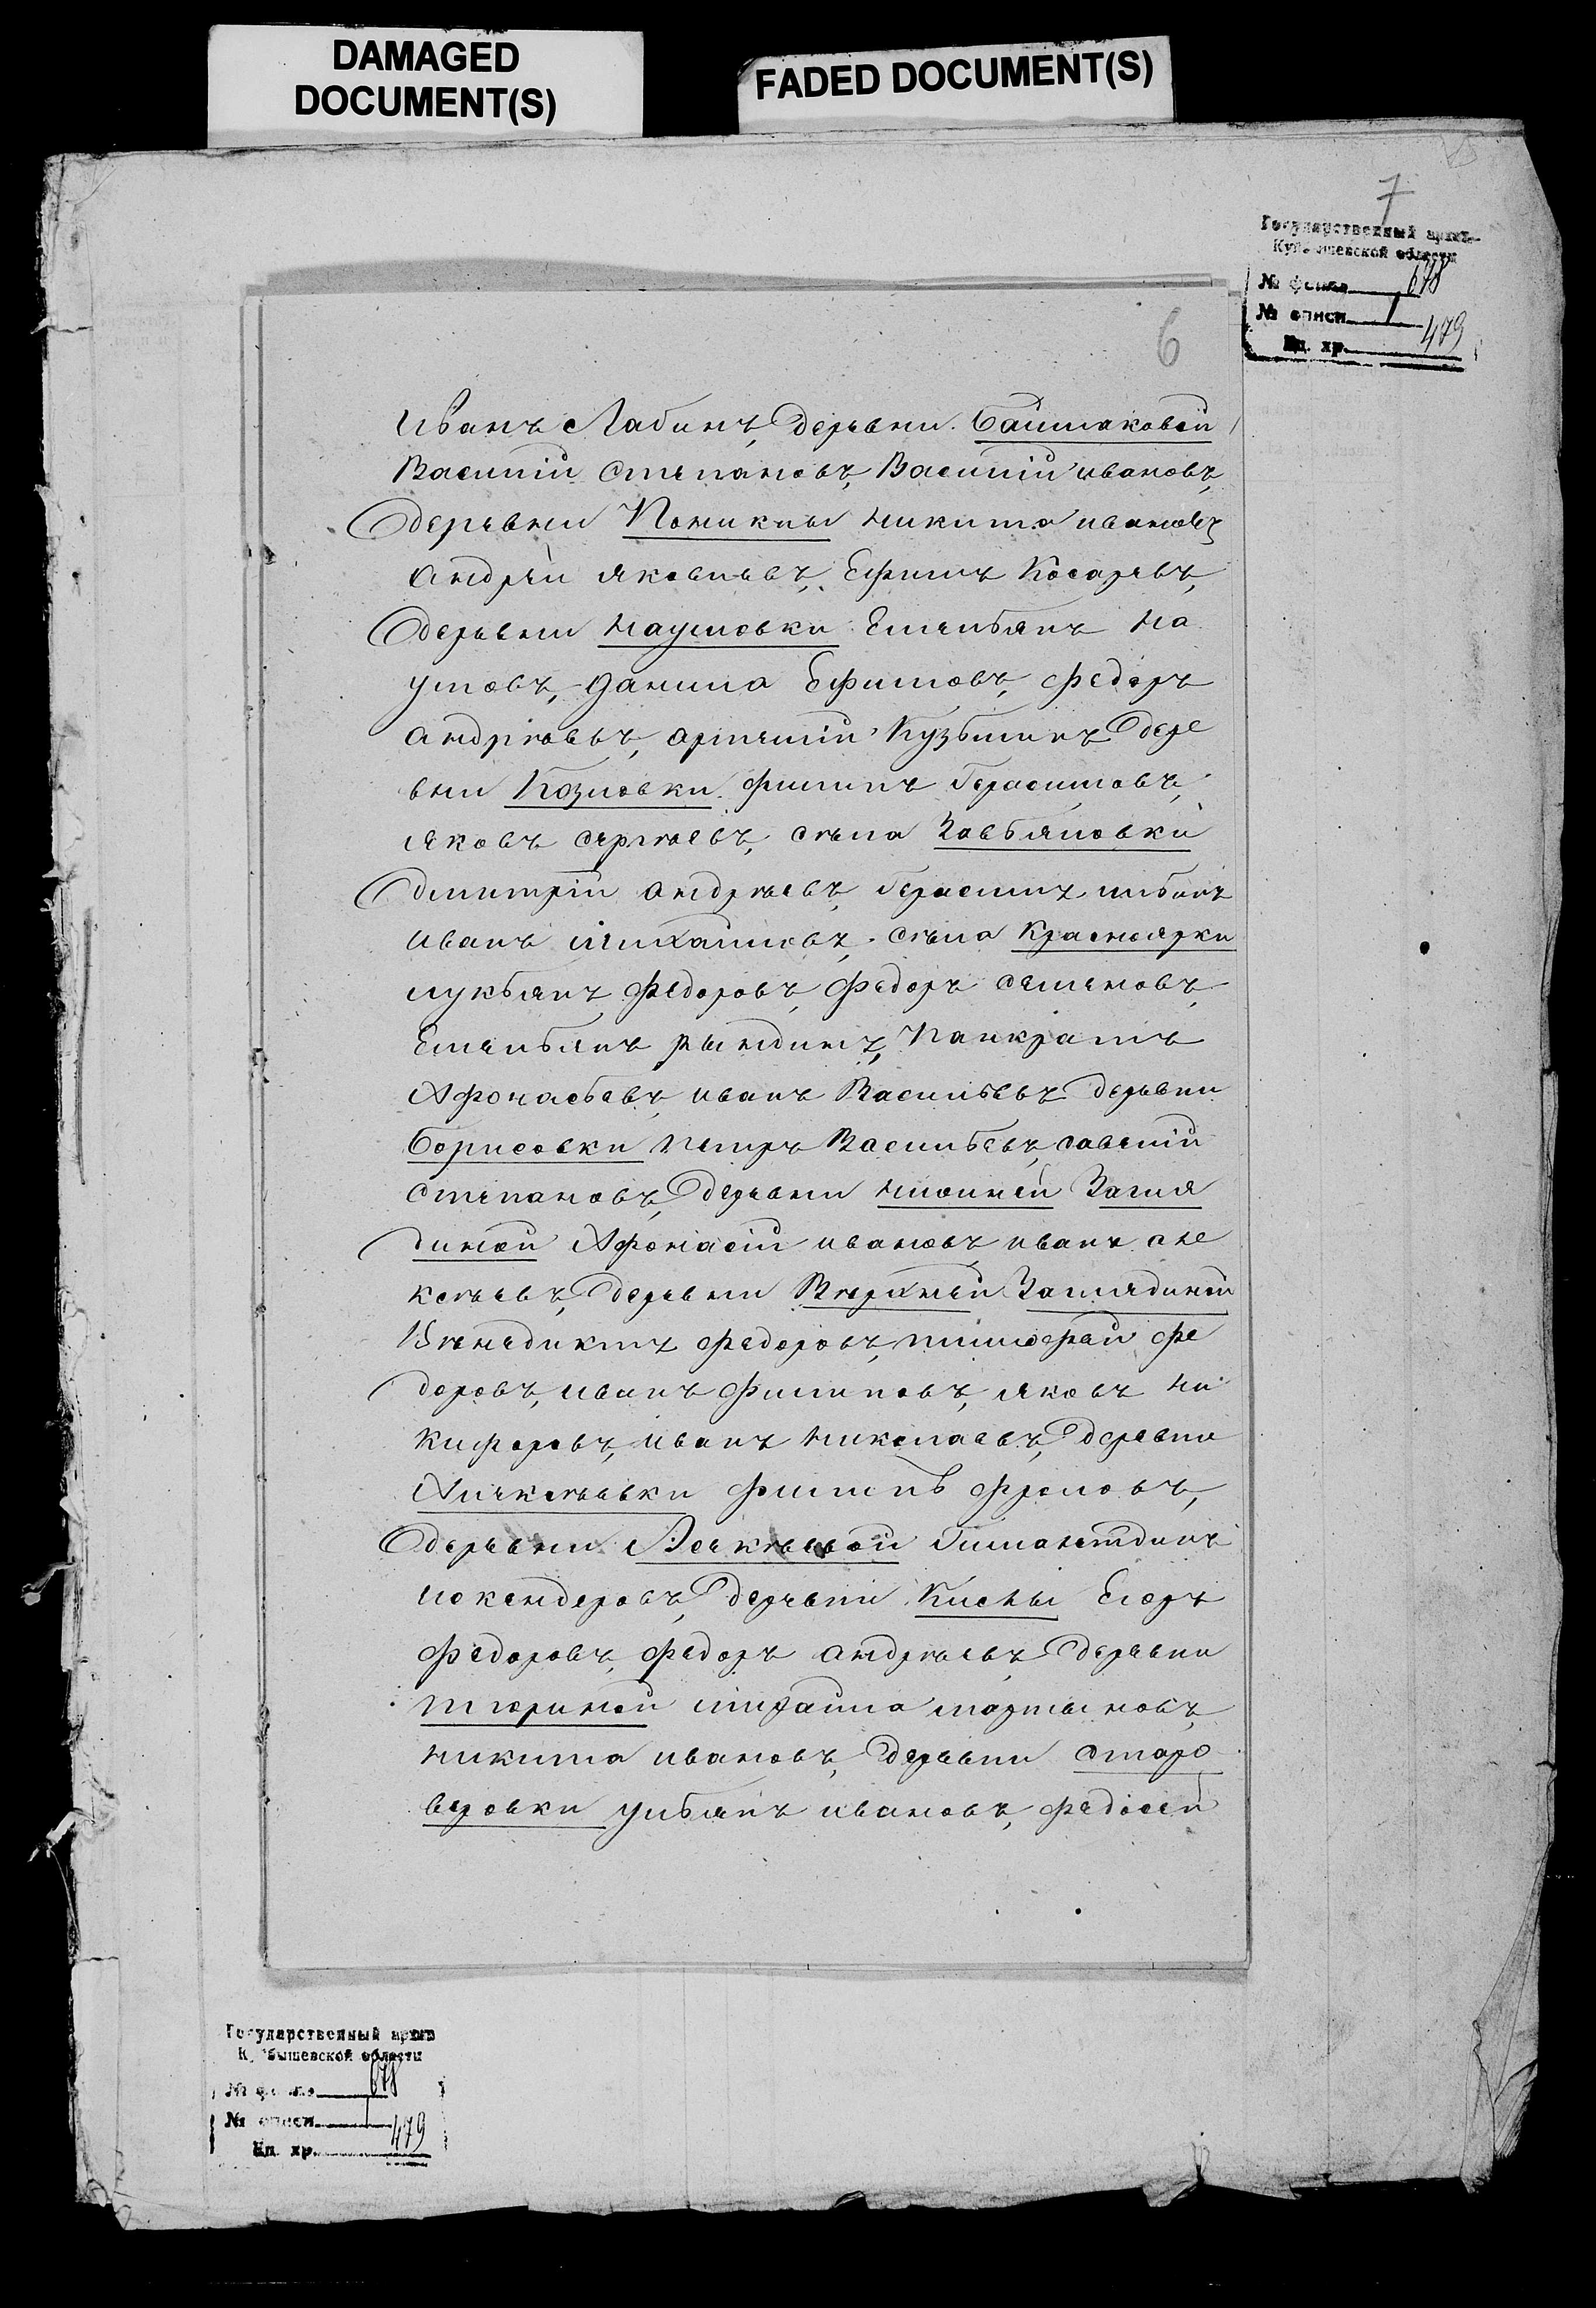 DAMAGED
DOCUMENT(S)
FADED DOCUMENT(S)
7
Государственный архив
Куйбышевской области
№ фонда 678
№ описи 1
Ед. хр. 479
6
Иванъ Лабинъ, деревни Башмаковой
Василій Степановъ, Василій ивановъ,
деревни Поникны никита ивановъ
андрей яковлевъ, Ефимъ Косаревъ,
деревни наумовки Емельянъ на
умовъ, данила Ефимовъ, федоръ
андрѣевъ, артемій Кузьминъ дере
вни Козловки филипъ Герасимовъ,
яковъ сергѣевъ, сѣла Завьяловки
дмитрій андрѣевъ, Герасимъ
иванъ михайловъ, сѣла Красноярки
лукьянъ федоровъ, федоръ семеновъ,
Емельянъ рындинъ, Панкратъ
Афонасьевъ, иванъ Васильевъ деревни
Борисовки петръ Васильевъ, савелій
степановъ, деревни нижней Загля
диной Афонасій ивановъ, иванъ але
ксѣевъ, деревни Верхней Заглядиной
Венедиктъ федоровъ, тимофей фе
доровъ, иванъ филиповъ, яковъ ни
кифоровъ, иванъ николаевъ, деревни
Алексѣевки филипъ фроловъ,
деревни Асекѣевой
искендеровъ, деревни Кислы Егоръ
федоровъ, федоръ андрѣевъ деревни
тюриной михаила мартыновъ,
никита ивановъ, деревни старо
веровки ульянъ ивановъ, федосей
Государственный архив
Куйбышевской области
№ фонда 678
№ описи 1
Ед. хр. 479